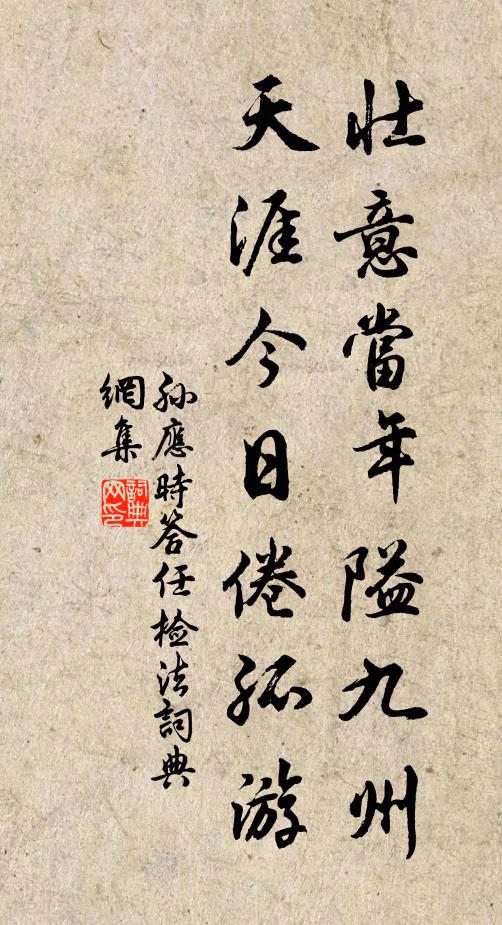 壯意當年隘九州
天涯今日倦孤游
孫應時答任檢法詞典
網集
詞典
网印